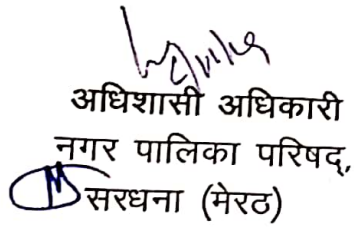 अधिशासी अधिकारी
नगर पालिका परिषद्,
सरधना (मेरठ)